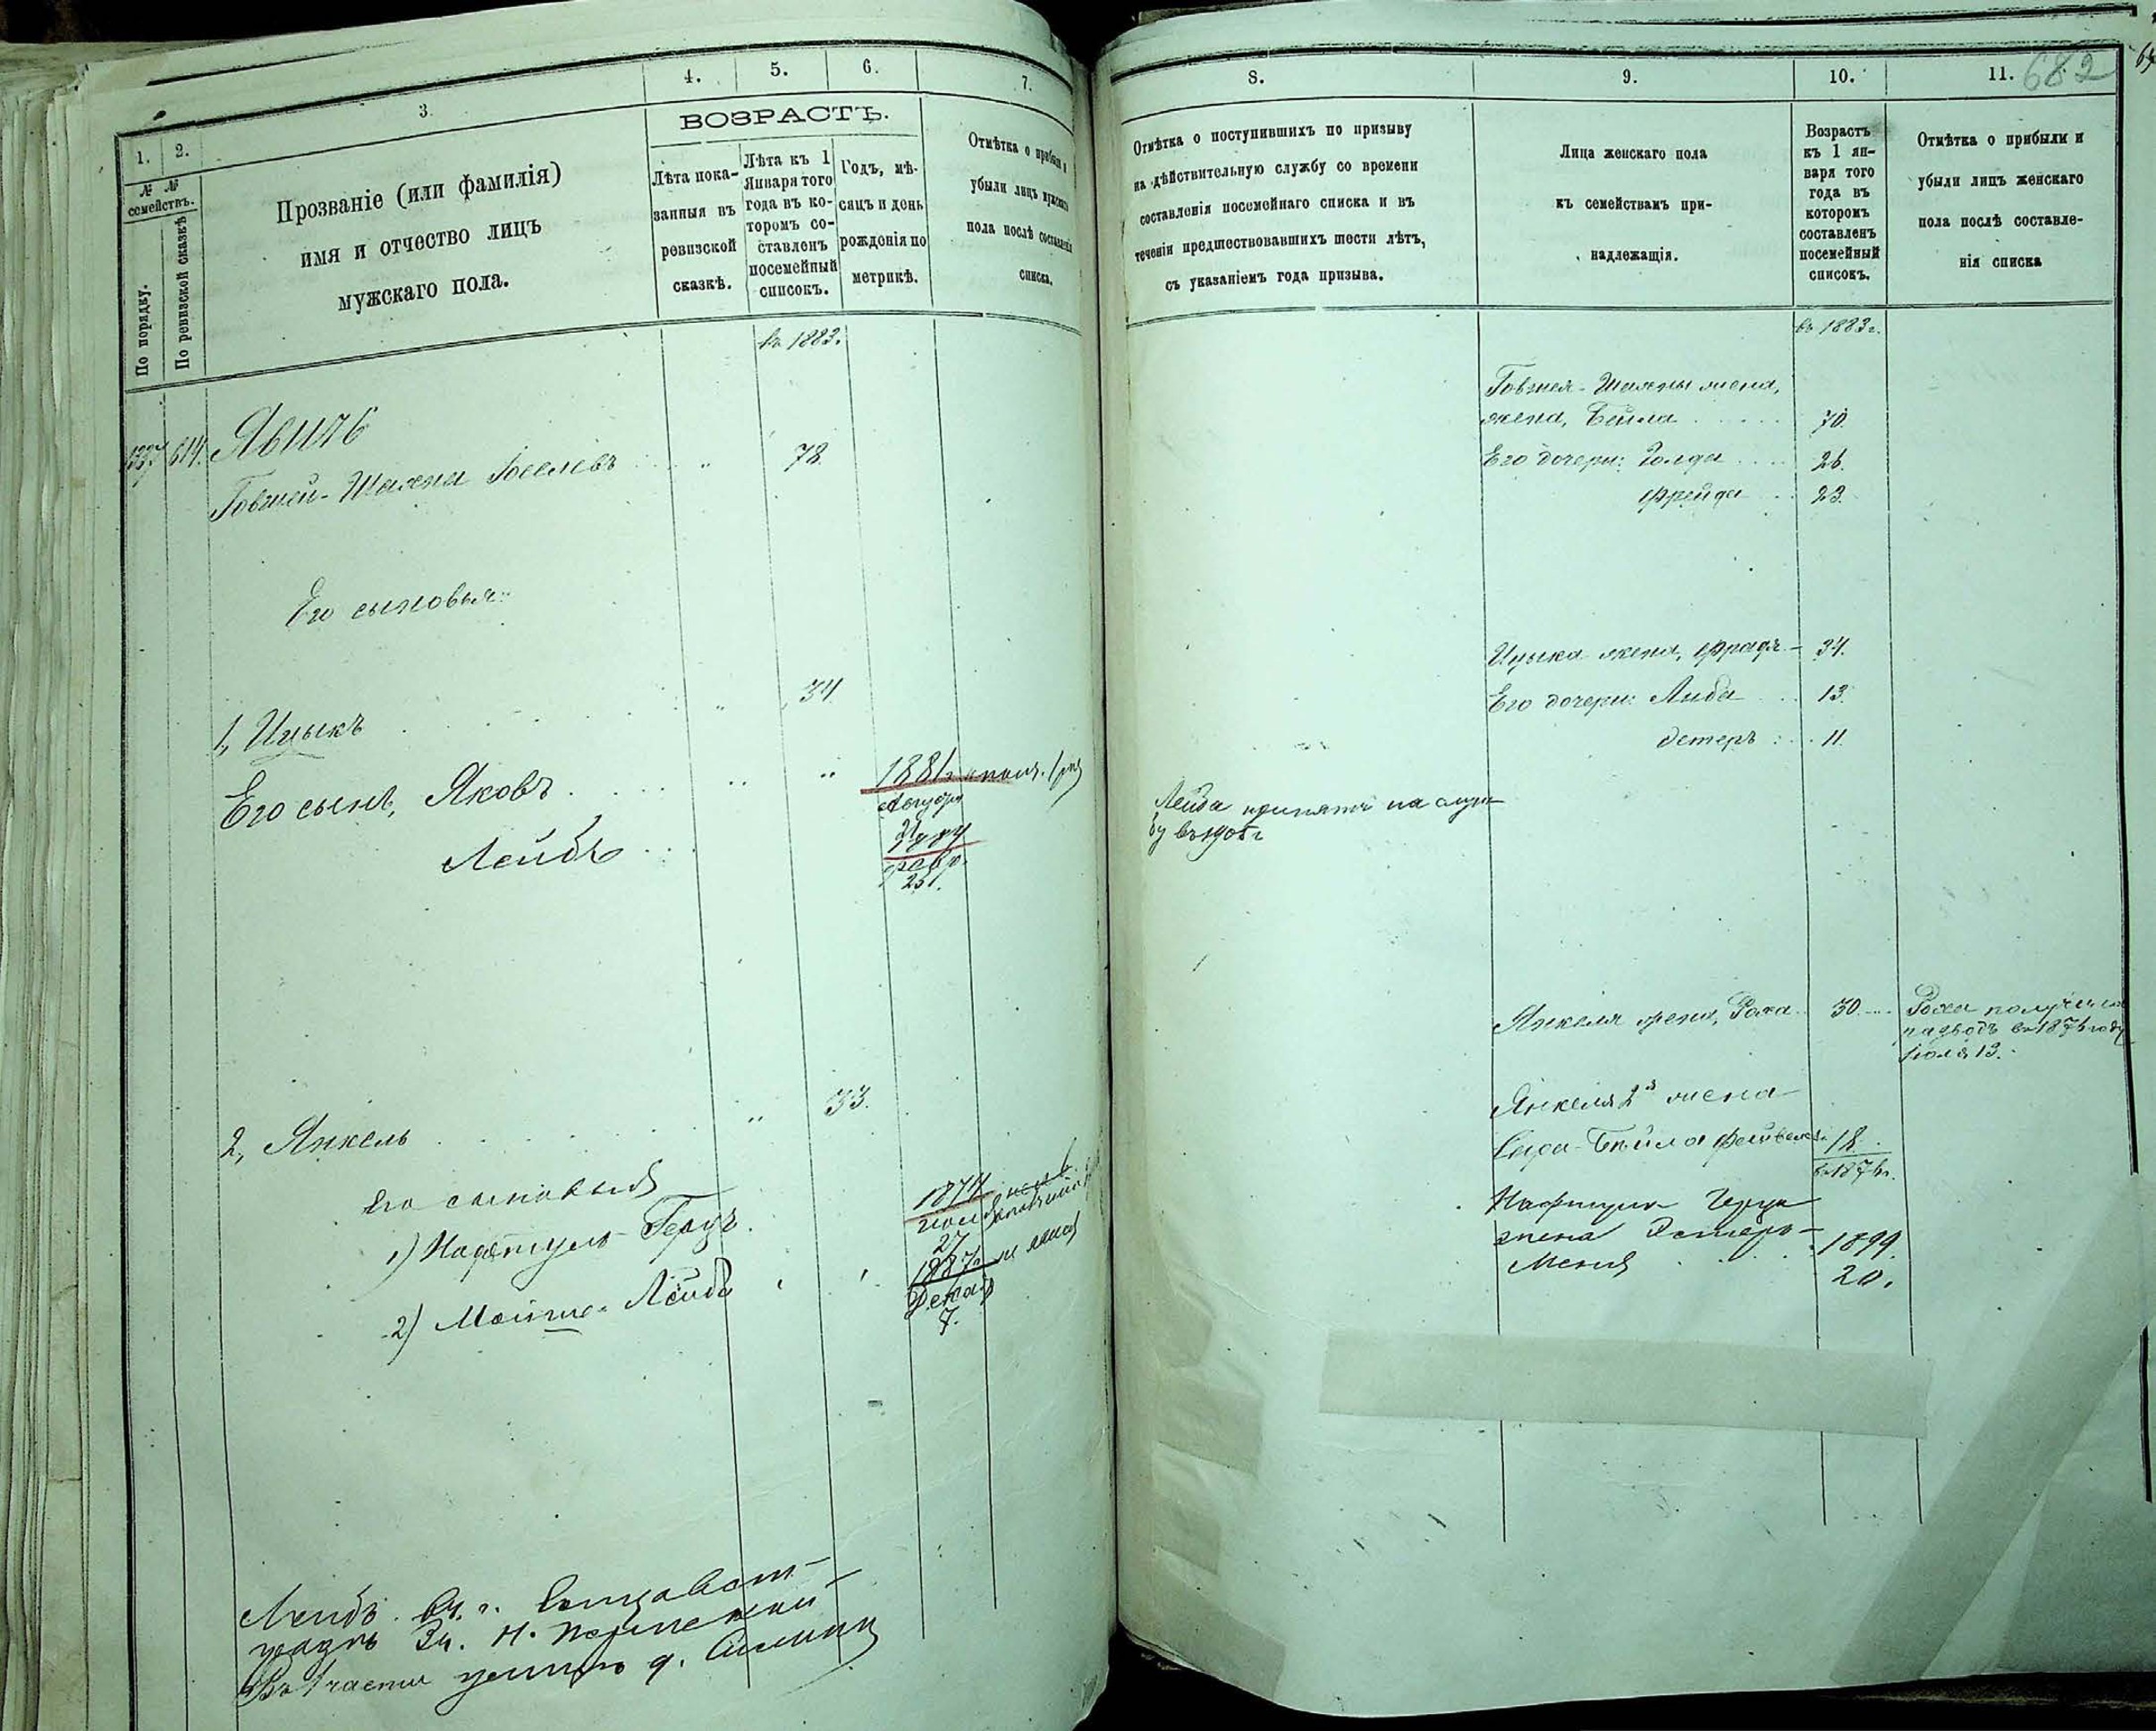 1.
2.
3.
4.
5.
6.
7.
ВОЗРАСТЪ.
№ №
семействъ.
По порядку.
По ревизской сказкѣ
Прозваніе (или фамилія)
имя и отчество лицъ
мужскаго пола.
Лѣта пока-
занныя въ
ревизской
сказкѣ.
Лѣта къ 1
Января того
года въ ко-
торомъ со-
ставленъ
посемейный
списокъ.
Годъ, мѣ-
сяцъ и день
рожденія по
метрикѣ.
Отмѣтка о прибыли и
убыли лицъ мужскаго
пола послѣ составленія
списка.
въ 1883.
614. Явичъ
Говшей-Шахна Іоселевъ 78.
Его сыновья:
1, Ицыкъ 34.
Его сынъ, Яковъ 1881
Лейбъ
февр.
25.
2, Янкель 33.
Его сыновья
1) Нафтуль-Герцъ 1874
27
2) Мойше-Лейба 1887
Декаб
7.
Лейбъ въ г.
8.
9.
10.
11.
682
Отмѣтка о поступившихъ по призыву
на дѣйствительную службу со времени
составленія посемейнаго списка и въ
теченіи предшествовавшихъ шести лѣтъ,
съ указаніемъ года призыва.
Лица женскаго пола
къ семействамъ при-
надлежащія.
Возрастъ
къ 1 ян-
варя того
года въ
которомъ
составленъ
посемейный
списокъ.
Отмѣтка о прибыли и
убыли лицъ женскаго
пола послѣ составле-
нія списка
въ 1883 г.
Говшея-Шахны жена,
жена, Бейла 70.
Его дочери: Голда 26.
Фрейда 23.
Ицыка жена, Фрадя 34.
Его дочери: Либа 13.
Эстеръ 11.
Лейба принятъ на служ
бу въ 1905 г
Янкеля жена, Роха 30
Роха получила
разводъ въ 1876 году
Іюля 13.
Янкеля 2я жена
Сора-Бейла 18.
въ 1876 г.
Нафтуля Герца
жена Эстеръ-
Меня 1899.
20.